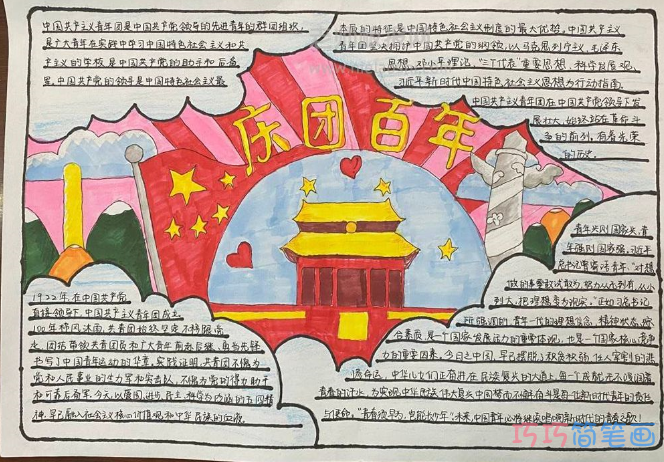 中国共产主义青年团是中国共产党领导的先进青年的群团组织,
是广大青年在实践中学习中国特色社会主义和共
产主义的学校是中国共产党的助手和后备
军,中国共产党的领导是中国特色社会主义最
本质的特征是中国特色社会主义制度的最大优势,中国共产主义
青年团坚决拥护中国共产党的纲领,以马克思列宁主义,毛泽东
思想,邓小平理论,“三个代表”重要思想,科学发展观,
习近平新时代中国特色社会主义思想为行动指南,
中国共产主义青年团在中国共产党领导下发
展壮大,始终站在革命斗
争的前列,有着光荣
的历史.
庆团百年
1922年在中国共产党
直接领导下,中国共产主义青年团成立,
100年栉风沐雨,共青团始终坚定不移跟党
走,团结带领共青团员和广大青年前赴后继、勇当先锋
书写了中国青年运动的华章,实践证明,共青团不愧为
党和人民事业的生力军和突击队,不愧为党的得力助手
和可靠后备军,今天,以爱国,进步,民主,科学为内涵的五四精
神,早已融入社会主义核心价值观和中华民族的血液.
青年兴则国家兴,青
年强则国家强,习近平
总书记曾寄语青年“对想
做的事要敢试敢闯努力从无到有,从小
到大,把理想变为现实。”正如习总书记
所强调的青年一代的理想信念,精神状态,综
合素质,是一个国家发展活力的重要体现,也是一个国家核心竞争
力的重要因素,今日之中国,早已摆脱了积贫积弱,任人宰割的悲
惨命运,中华儿女们正奋进在民族复兴的大道上,每一个成就无不浸润着
青春的汗水,为实现中华民族伟大复兴中国梦而不懈奋斗是每个
与使命,“青春须早为,岂能长少年”未来,中国青年必将继续唱响新时代的青春之歌!
巧巧简笔画